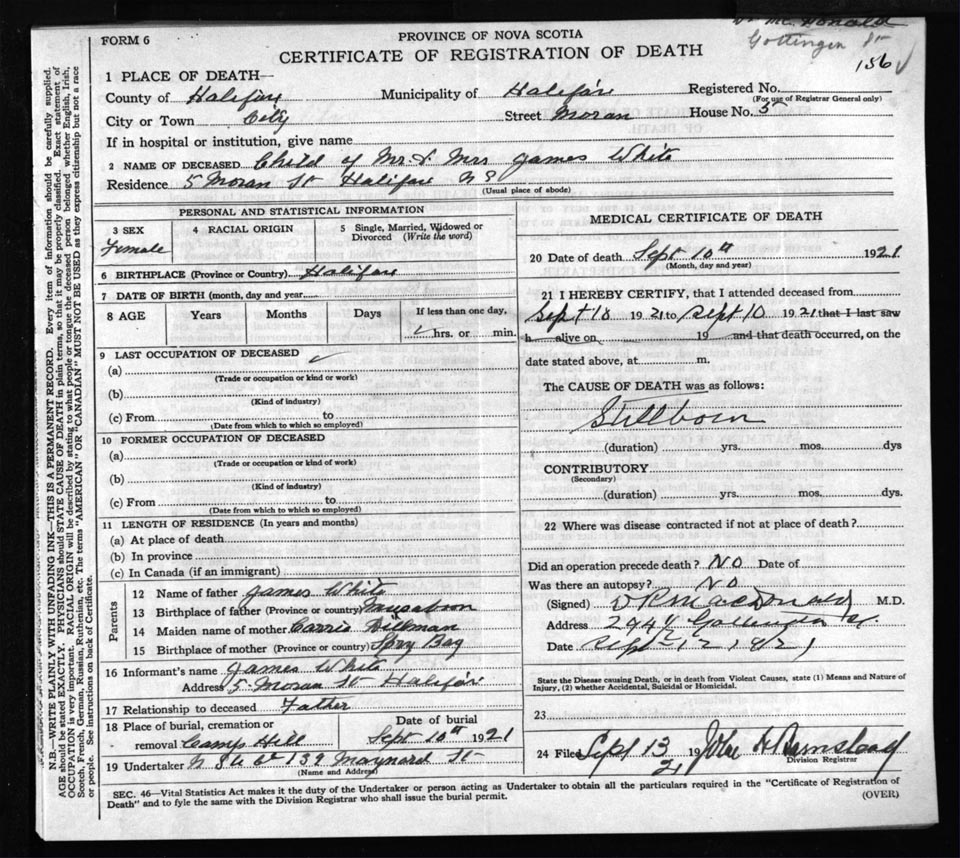 Dr Mc. Donald
Gottingen St
156
FORM 6
PROVINCE OF NOVA SCOTIA
CERTIFICATE OF REGISTRATION OF DEATH
1 PLACE OF DEATH—
County of Halifax Municipality of Halifax Registered No.
(For use of Registrar General only)
City or Town City Street Moran House No. 5
If in hospital or institution, give name
2 NAME OF DECEASED Child of Mr. & Mrs James White
Residence 5 Moran St Halifax N S
(Usual place of abode)
PERSONAL AND STATISTICAL INFORMATION
3 SEX 4 RACIAL ORIGIN 5 Single, Married, Widowed or Divorced (Write the word)
Female
6 BIRTHPLACE (Province or Country) Halifax
7 DATE OF BIRTH (month, day and year
8 AGE Years Months Days If less than one day,
hrs. or min.
9 LAST OCCUPATION OF DECEASED
(a)
(Trade or occupation or kind or work)
(b)
(Kind of industry)
(c) From to
(Date from which to which so employed)
10 FORMER OCCUPATION OF DECEASED
(a)
(Trade or occupation or kind of work)
(b)
(Kind of industry)
(c) From to
(Date from which to which so employed)
11 LENGTH OF RESIDENCE (In years and months)
(a) At place of death
(b) In province
(c) In Canada (if an immigrant)
Parents
12 Name of father James White
13 Birthplace of father (Province or country)
14 Maiden name of mother Carrie
15 Birthplace of mother (Province or country) Spry Bay
16 Informant's name James White
Address 5 Moran St Halifax
17 Relationship to deceased Father
18 Place of burial, cremation or Date of burial
removal Camp Hill Sept 10th 1921
19 Undertaker 139 Maynard St
(Name and Address)
MEDICAL CERTIFICATE OF DEATH
20 Date of death Sept 10th 1921
(Month, day and year)
21 I HEREBY CERTIFY, that I attended deceased from
Sept 10 1921 to Sept 10 1921 that I last saw
h alive on 19 and that death occurred, on the
date stated above, at m.
The CAUSE OF DEATH was as follows:
Stillborn
(duration) yrs. mos. dys
CONTRIBUTORY
(Secondary)
(duration) yrs. mos. dys.
22 Where was disease contracted if not at place of death?
Did an operation precede death? NO Date of
Was there an autopsy? NO
(Signed) MacDonald M.D.
Address 294 Gottingen St.
Date Sept 12 1921
State the Disease causing Death, or in death from Violent Causes, state (1) Means and Nature of
Injury, (2) whether Accidental, Suicidal or Homicidal.
23
24 Filed Sept 13 1921 John H Barnstead
Division Registrar
SEC. 46—Vital Statistics Act makes it the duty of the Undertaker or person acting as Undertaker to obtain all the particulars required in the "Certificate of Registration of
Death" and to fyle the same with the Division Registrar who shall issue the burial permit.
(OVER)
N.B.—WRITE PLAINLY WITH UNFADING INK—THIS IS A PERMANENT RECORD. Every item of information should be carefully supplied.
AGE should be stated EXACTLY. PHYSICIANS should STATE CAUSE OF DEATH in plain terms, so that it may be properly classified. Exact statement of
OCCUPATION is very important. RACIAL ORIGIN will be described by stating to what people or tongue the deceased person belonged whether English, Irish,
Scotch, French, German, Russian, Ruthenian, etc. The terms "AMERICAN" OR "CANADIAN" MUST NOT BE USED as they express citizenship but not a race
or people. See instructions on back of Certificate.